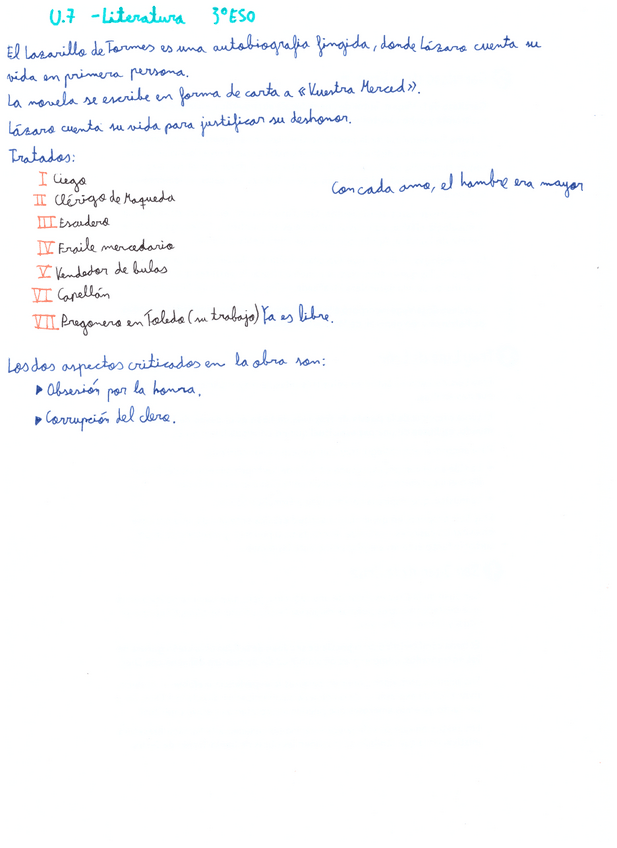 U.7 - Literatura 3ºESO
El Lazarillo de Tormes es una autobiografía fingida, donde Lázaro cuenta su
vida en primera persona.
La novela se escribe en forma de carta a «Vuestra Merced».
Lázaro cuenta su vida para justificar su deshonor.
Tratados:
I Ciego
II Clérigo de Maqueda
Con cada amo, el hambre era mayor
III Escudero
IV Fraile mercedario
V Vendedor de bulas
VI Capellán
VII Pregonero en Toledo (su trabajo) Ya es libre.
Los dos aspectos criticados en la obra son:
▶ Obsesión por la honra.
▶ Corrupción del clero.